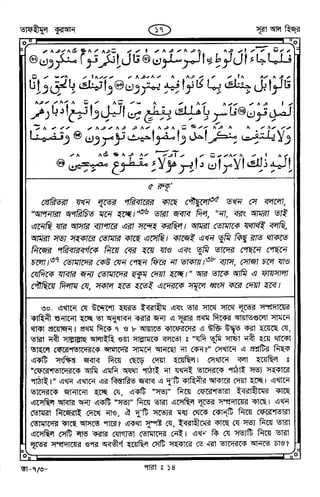 তাফহীমুল কুরআন
১৭
সূরা আল হিজর
فَلَمَّا جَاءَ اٰلَ لُوْطِ ِۨالْمُرْسَلُوْنَ ۝ قَالَ اِنَّكُمْ قَوْمٌ مُّنْكَرُوْنَ ۝
قَالُوْا بَلْ جِئْنٰكَ بِمَا كَانُوْا فِيْهِ يَمْتَرُوْنَ ۝ وَاَتَيْنٰكَ بِالْحَقِّ وَاِنَّا
لَصٰدِقُوْنَ ۝ فَاَسْرِ بِاَهْلِكَ بِقِطْعٍ مِّنَ الَّيْلِ وَاتَّبِعْ اَدْبَارَهُمْ
وَلَا يَلْتَفِتْ مِنْكُمْ اَحَدٌ وَّامْضُوْا حَيْثُ تُؤْمَرُوْنَ ۝ وَقَضَيْنَا
اِلَيْهِ ذٰلِكَ الْاَمْرَ اَنَّ دَابِرَ هٰٓؤُلَاءِ مَقْطُوْعٌ مُّصْبِحِيْنَ ۝
৫ রুকূ'
প্রেরিতরা যখন লূতের পরিবারের কাছে পৌঁছুলো৩৫ তখন সে বললো,
"আপনারা অপরিচিত মনে হচ্ছে।"৩৬ তারা জবাব দিল, "না, বরং আমরা তাই
এনেছি যার আসার ব্যাপারে এরা সন্দেহ করছিল। আমরা তোমাকে যথার্থই বলছি,
আমরা সত্য সহকারে তোমার কাছে এসেছি। কাজেই এখন তুমি কিছু রাত থাকতে
নিজের পরিবারবর্গকে নিয়ে বের হয়ে যাও এবং তুমি তাদের পেছনে পেছনে
চলো।৩৭ তোমাদের কেউ যেন পেছন ফিরে না তাকায়।৩৮ ব্যাস, সোজা চলে যাও
যেদিকে যাবার জন্য তোমাদের হুকুম দেয়া হচ্ছে।" আর তাকে আমি এ ফায়সালা
পৌঁছিয়ে দিলাম যে, সকাল হতে হতেই এদেরকে সমূলে ধ্বংস করে দেয়া হবে।
৩০. এখানে যে উদ্দেশ্যে হযরত ইবরাহীম এবং তার সাথে সাথে লূতের সম্প্রদায়ের
কাহিনী শুনানো হচ্ছে তা অনুধাবন করার জন্য এ সূরার প্রথম দিকের আয়াতগুলো সামনে
থাকা প্রয়োজন। প্রথম দিকে ৭ ও ৮ আয়াতে কাফেরদের এ উক্তি উদ্ধৃত করা হয়েছে যে,
তারা নবী সাল্লাল্লাহু আলাইহি ওয়া সাল্লামকে বলতো : "যদি তুমি সাচ্চা নবী হয়ে থাকো
তাহলে ফেরেশতাদেরকে আমাদের সামনে আনছো না কেন?" সেখানে এ প্রশ্নটির নিছক
একটি সংক্ষিপ্ত জবাব দিয়ে ছেড়ে দেয়া হয়েছিল। সেখানে বলা হয়েছিল :
"ফেরেশতাদেরকে আমি এমনি অযথা পাঠাই না যখনই তাদেরকে পাঠাই সত্য সহকারে
পাঠাই।" এখন এখানে এর বিস্তারিত জবাব এ দু'টি কাহিনীর আকারে দেয়া হচ্ছে। এখানে
তাদেরকে জানানো হচ্ছে যে, একটি "সত্য" নিয়ে ফেরেশতারা ইবরাহীমের কাছে
এসেছিল আবার অন্য একটি "সত্য" নিয়ে তারা এসেছিল লূতের সম্প্রদায়ের কাছে। এখন
তোমরা নিজেরাই দেখে নাও, ঐ দু'টি সত্যের মধ্য থেকে কোনটি নিয়ে ফেরেশতারা
তোমাদের কাছে আসতে পারে? একথা সুস্পষ্ট যে, ইবরাহীমের কাছে যে সত্য নিয়ে তারা
এসেছিল সেটি লাভ করার যোগ্যতা তোমাদের নেই। এখন কি যে সত্যটি নিয়ে তারা
লূতের সম্প্রদায়ের ওপর অবতীর্ণ হয়েছিল সেটি সহকারে তোমরা তাদেরকে আনতে চাও?
তা-৭/৩-
পারা : ১৪